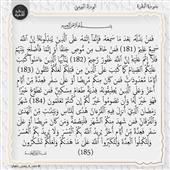 بسم الله الرحمن الرحيم
فَمَن بَدَّلَهُ بَعْدَ مَا سَمِعَهُ فَإِنَّمَا إِثْمُهُ عَلَى الَّذِينَ يُبَدِّلُونَهُ إِنَّ اللَّهَ
سَمِيعٌ عَلِيمٌ (181) فَمَنْ خَافَ مِن مُّوصٍ جَنَفًا أَوْ إِثْمًا فَأَصْلَحَ بَيْنَهُمْ
فَلَا إِثْمَ عَلَيْهِ إِنَّ اللَّهَ غَفُورٌ رَّحِيمٌ (182) يَا أَيُّهَا الَّذِينَ آمَنُوا كُتِبَ
عَلَيْكُمُ الصِّيَامُ كَمَا كُتِبَ عَلَى الَّذِينَ مِن قَبْلِكُمْ لَعَلَّكُمْ تَتَّقُونَ (183)
أَيَّامًا مَّعْدُودَاتٍ فَمَن كَانَ مِنكُم مَّرِيضًا أَوْ عَلَى سَفَرٍ فَعِدَّةٌ مِّنْ أَيَّامٍ
أُخَرَ وَعَلَى الَّذِينَ يُطِيقُونَهُ فِدْيَةٌ طَعَامُ مِسْكِينٍ فَمَن تَطَوَّعَ خَيْرًا
فَهُوَ خَيْرٌ لَّهُ وَأَن تَصُومُوا خَيْرٌ لَّكُمْ إِن كُنتُمْ تَعْلَمُونَ (184) شَهْرُ
رَمَضَانَ الَّذِي أُنزِلَ فِيهِ الْقُرْآنُ هُدًى لِّلنَّاسِ وَبَيِّنَاتٍ مِّنَ الْهُدَى
وَالْفُرْقَانِ فَمَن شَهِدَ مِنكُمُ الشَّهْرَ فَلْيَصُمْهُ وَمَن كَانَ مَرِيضًا أَوْ عَلَى
سَفَرٍ فَعِدَّةٌ مِّنْ أَيَّامٍ أُخَرَ يُرِيدُ اللَّهُ بِكُمُ الْيُسْرَ وَلَا يُرِيدُ بِكُمُ الْعُسْرَ
وَلِتُكْمِلُوا الْعِدَّةَ وَلِتُكَبِّرُوا اللَّهَ عَلَى مَا هَدَاكُمْ وَلَعَلَّكُمْ تَشْكُرُونَ
(185)